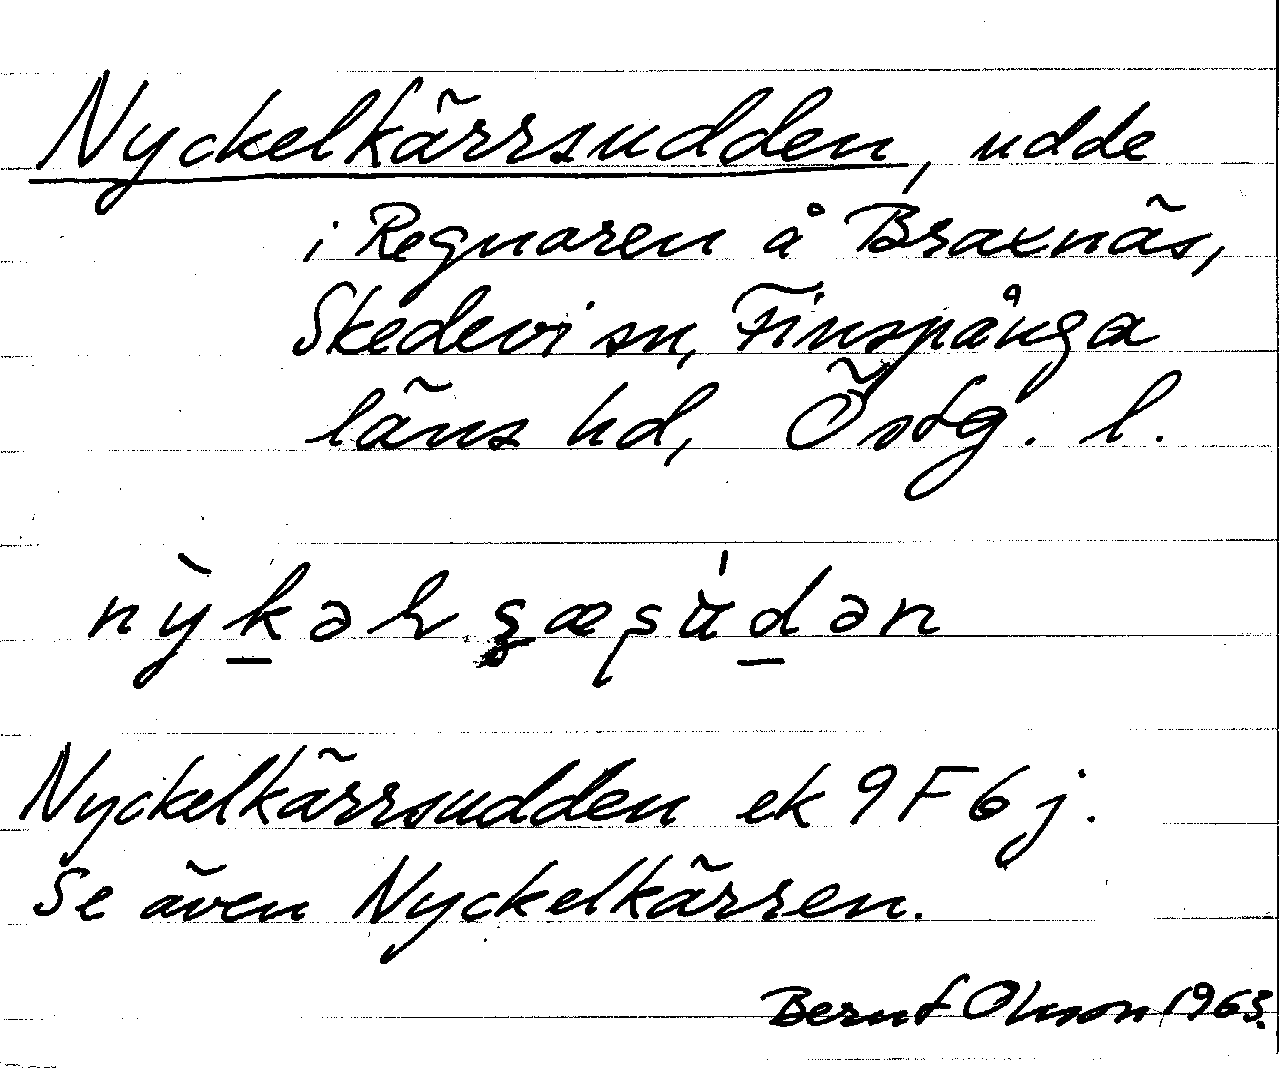 Nyckelkärrsudden, udde
i Regnaren å Braxnäs,
Skedevi sn, Finspånga
läns hd, Östg. l.
Nyckelkärrsudden ek 9F6j.
Se även Nyckelkärren.
Bernt Olsson 1963.